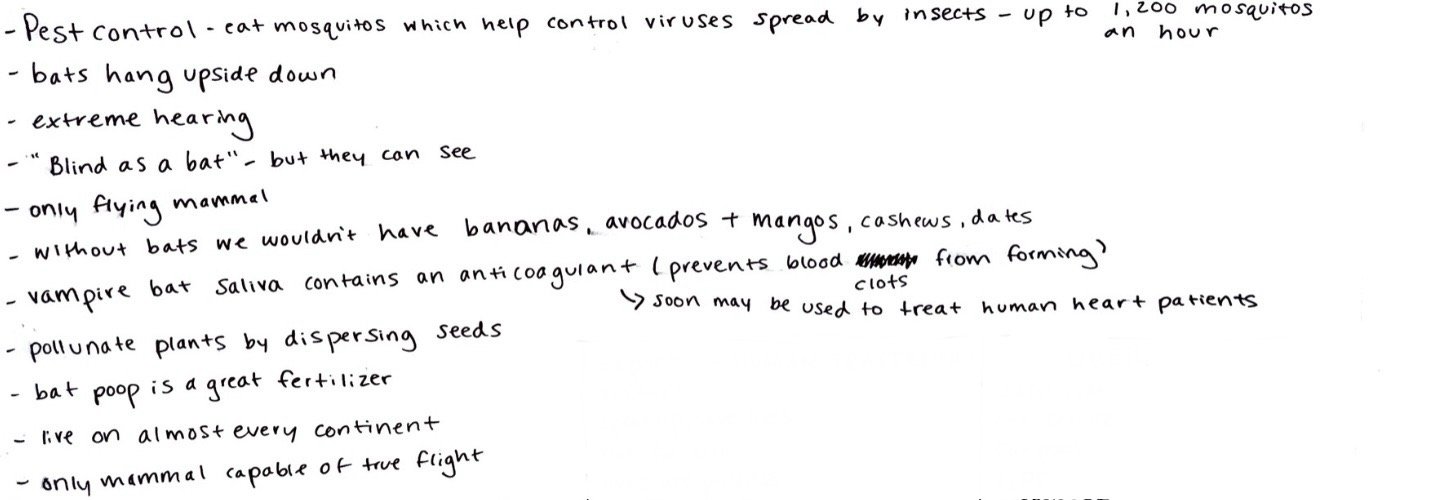 - Pest control - eat mosquitos which help control viruses spread by insects - up to 1,200 mosquitos
an hour
- bats hang upside down
- extreme hearing
- "Blind as a bat" - but they can see
- only flying mammal
- without bats we wouldn't have bananas, avocados + mangos, cashews, dates
- vampire bat saliva contains an anticoagulant (prevents blood clots from forming)
↳ soon may be used to treat human heart patients
- pollunate plants by dispersing seeds
- bat poop is a great fertilizer
- live on almost every continent
- only mammal capable of true flight